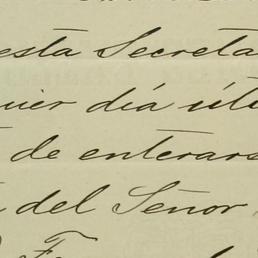 esta Secreta
uier día úti
de enterars
del Señor